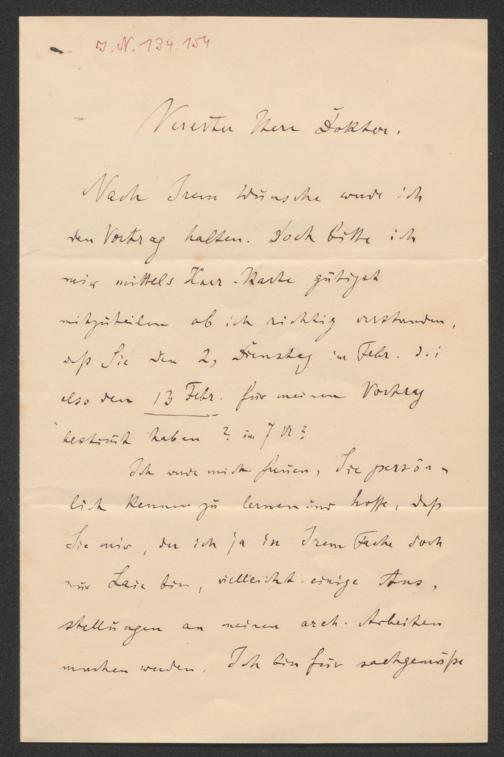 J. N. 134.154
Vererter Herr Doktor.
Nach Irem Wunsche werde ich
den Vortrag halten. Doch bitte ich
mir mittels Karte gütigst
mitzuteilen ob ich richtig verstanden,
daß Sie den 2, Dienstag im Febr. d. i
also den 13 Febr. für meinen Vortrag
bestimt haben? um 7 Ur?
Ich werde mich freuen, Sie persön
lich kennen zu lernen und hoffe, daß
Sie mir, der ich ja in Irem Fache doch
nur Laie bin, vielleicht einige Aus,
stellungen an meinen arch. Arbeiten
machen werden. Ich bin für sachgemäße